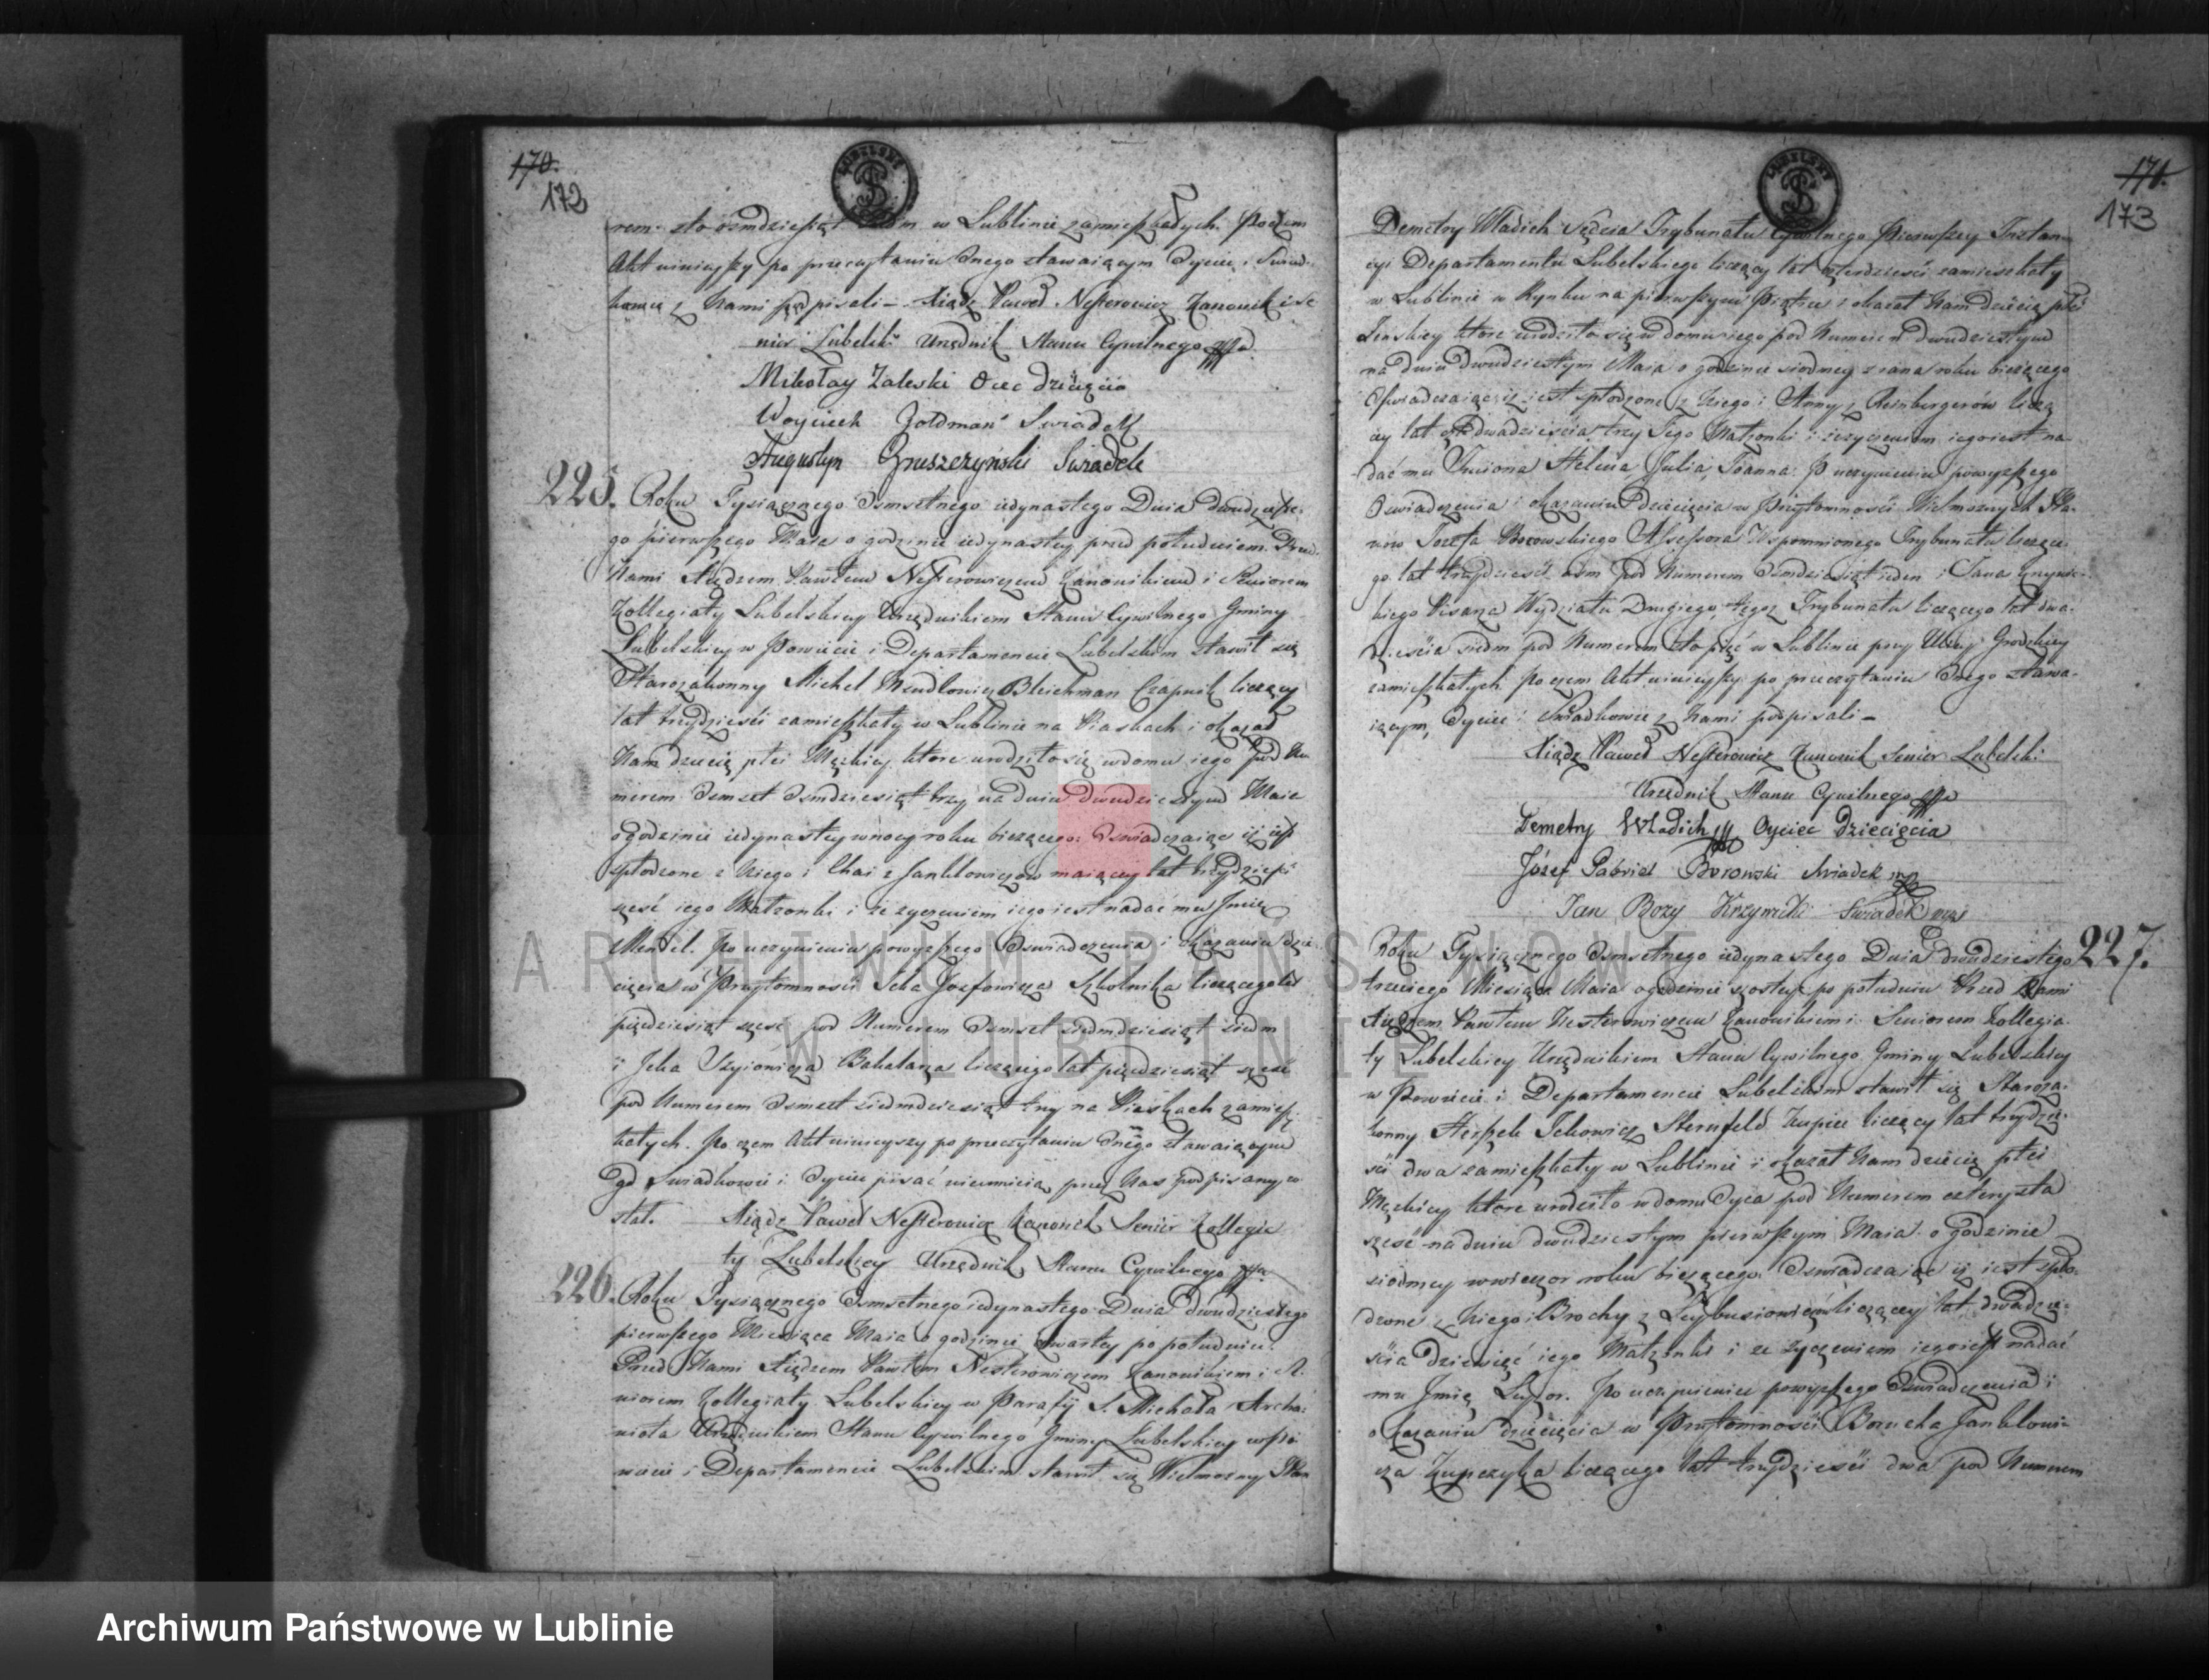 170.
172
rem sto osmdziesiąt osm w Lublinie zamieszkałych. Poczem
Akt ninieyszy po przeczytaniu Onego stawaiącym Oycu i Świad-
kowie z Nami podpisali – Xiądz Paweł Nesterowicz Kanonik i Se
nior Lubelski Urzędnik Stanu Cywilnego
Mikołay Zaleski Ociec dziecięcia
Woyciech Zoldman Swiadek
Augustyn Gruszczyński Swiadek
225. Roku Tysiącznego Osmsetnego iedynastego Dnia dwudzieste-
go pierwszego Maia o godzinie iedynastey przed południem. Przed
Nami Xiędzem Pawłem Nesterowiczem Kanonikiem i Seniorem
Kollegiaty Lubelskiey Urzędnikiem Stanu Cywilnego Gminy
Lubelskiey w Powiecie i Departamencie Lubelskim stawił się
Starozakonny Michel Mendlowicz Bleichman Czapnik liczący
lat trzydzieści zamieszkały w Lublinie na Piaskach i okazał
Nam dziecię płci Męzkiey które urodziło się w domu iego pod Nu
merem Osmset Osmdziesiąt trzy na dniu dwudziestym Maia
o godzinie iedynastey w nocy roku bieżącego. Oswiadczaiąc iż iest
spłodzone z Niego i Chai z Jankłowiczow maiącey lat trzydzieści
sześć iego Małżonki i że życzeniem iego iest nadać mu Jmię
Mendel. Po uczynieniu powyższego Oswiadczenia i okazaniu dzie
cięcia w Przytomności Jozefowicza Szkolnika liczącego lat
pięćdziesiąt sześć pod Numerem Osmset siedmdziesiąt siedm
i Jcka Szyiowicza Bakałarza liczącego lat pięćdziesiąt sześć
pod Numerem Osmset siedmdziesiąt trzy na Piaskach zamiesz-
kałych. Po czem Akt ninieyszy po przeczytaniu Onego stawaiącym
gd Swiadkowie i Oyciec pisać nieumieią przez Nas podpisany zo
stał. Xiądz Paweł Nesterowicz Kanonik Senior Kollegia
ty Lubelskiey Urzędnik Stanu Cywilnego
226. Roku Tysiącznego Osmsetnego iedynastego Dnia dwudziestego
pierwszego Miesiąca Maia o godzinie czwartey po południu.
Przed Nami Xiędzem Pawłem Nesterowiczem Kanonikiem i Se
niorem Kollegiaty Lubelskiey w Parafij S. Michała Archa-
nioła Urzędnikiem Stanu Cywilnego Gminy Lubelskiey w Po
wiecie i Departamencie Lubelskim stawił się Wielmożny Pan
171.
173
Demetry Władich Sędzia Trybunału Cywilnego Pierwszey Instan-
cyi Departamentu Lubelskiego liczący lat czterdzieści zamieszkały
w Lublinie w Rynku na pierwszym Piętrze i okazał Nam dziecię płci
Żenskiey które urodziło się w domu iego pod Numerem dwudziestym
na dniu dwudziestym Maia o godzinie siodmey z rana roku bieżącego
Oswiadczaiąc iż iest spłodzone z Niego i Anny z Reinbergerów liczą
cey lat dwadzieścia trzy Jego Małżonki i że życzeniem iego iest na-
dać mu Jmiona Helena Julia, Joanna. Po uczynieniu powyższego
Oswiadczenia i okazaniu Dziecięcia w Przytomności Wielmożnych Pa-
now Jozefa Borowskiego Assessora Wspomnionego Trybunału liczące
go lat trzydzieści osm pod Numerem Osmdziesiąt ieden i Jana
kiego Pisarza Wydziału Drugiego tegoż Trybunału liczącego lat dwa-
dzieścia siedm pod Numerem sto pięć w Lublinie przy Ulicy Grodzkiey
zamieszkałych. Po czem Akt ninieyszy po przeczytaniu Onego stawa-
iącym, Oyciec i Swiadkowie z Nami podpisali –
Xiądz Paweł Nesterowicz Kanonik Senior Lubelski
Urzędnik Stanu Cywilnego
Demetry Władich Oyciec Dziecięcia
Józef Gabriel Borowski Swiadek
Jan Bozy Krzywicki Swiadek
227.
Roku Tysiącznego Osmsetnego iedynastego Dnia dwudziestego
trzeciego Miesiąca Maia o godzinie szostey po południu Przed Nami
Xiędzem Pawłem Nesterowiczem Kanonikiem i Seniorem Kollegia-
ty Lubelskiey Urzędnikiem Stanu Cywilnego Gminy Lubelskiey
w Powiecie i Departamencie Lubelskim stawił się Staroza-
konny Herszek Jckowicz Sternfeld Kupiec liczący lat trzydzie-
ści dwa zamieszkały w Lublinie i okazał Nam dziecię płci
Męzkiey które urodziło w domu Oyca pod Numerem czterysta
sześć na dniu dwudziestym pierwszym Maia o godzinie
siodmey w wieczor roku bieżącego. Oswiadczaiąc iż iest spło-
dzone z Niego i Brochy z Leybusiowiczow liczącey lat dwadzie-
ścia dziewięć iego Małżonki i że życzeniem iego iest nadać
mu Jmię Leyzor. Po uczynieniu powyższego Oswiadczenia i
okazaniu dziecięcia w Przytomności Borucha Jankłowi-
cza Kupczyka liczącego lat trzydzieści dwa pod Numerem
ARCHIWUM PAŃSTWOWE
W LUBLINIE
Archiwum Państwowe w Lublinie